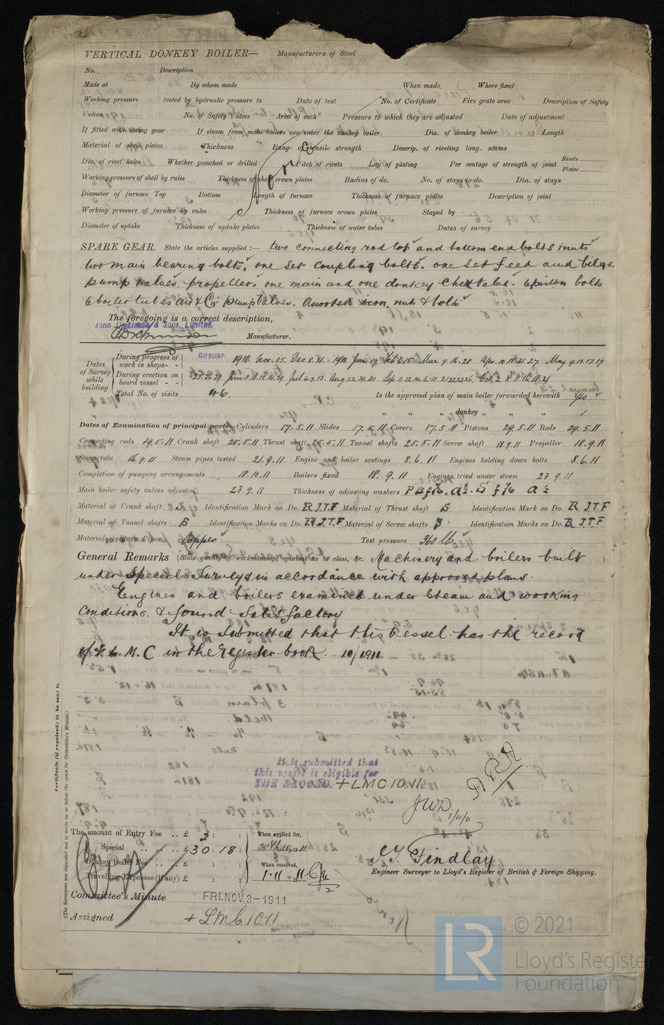 VERTICAL DONKEY BOILER— Manufacturers of Steel
No. Description
Made at By whom made When made Where fixed
Working pressure tested by hydraulic pressure to Date of test No. of Certificate Fire grate area Description of Safety
Valves No. of Safety Valves Area of each Pressure to which they are adjusted Date of adjustment
If fitted with easing gear If steam from main boilers can enter the donkey boiler Dia. of donkey boiler Length
Material of shell plates Thickness Range of tensile strength Descrip. of riveting long. seams
Dia. of rivet holes Whether punched or drilled Pitch of rivets Lap of plating Per centage of strength of joint Rivets Plates
Working pressure of shell by rules Thickness of shell crown plates Radius of do. No. of stays to do. Dia. of stays
Diameter of furnace Top Bottom Length of furnace Thickness of furnace plates Description of joint
Working pressure of furnace by rules Thickness of furnace crown plates Stayed by
Diameter of uptake Thickness of uptake plates Thickness of water tubes Dates of survey
SPARE GEAR. State the articles supplied:— two connecting rod top and bottom end bolts & nuts
two main bearing bolts, one set coupling bolts. one set feed and bilge
pump valves. propeller, one main and one donkey check valve. 6 piston bolts
6 boiler tubes air & Cir pump valves. Assorted iron, nuts & bolts
The foregoing is a correct description,
John Dickinson & Sons, Limited.
Manufacturer.
Director
Dates of Survey while building
During progress of work in shops - - 1910. Nov. 25. Dec 6.
During erection on board vessel - - -
Total No. of visits 46. Is the approved plan of main boiler forwarded herewith Yes
" " " donkey " " "
Dates of Examination of principal parts—Cylinders 17.5.11 Slides 17.5.11 Covers 17.5.11 Pistons 29.5.11 Rods 29.5.11
Connecting rods 19.5.11 Crank shaft 25.5.11 Thrust shaft 25.5.11 Tunnel shafts 25.5.11 Screw shaft Propeller 18.9.11
Stern tube 16.9.11 Steam pipes tested 21.9.11 Engine and boiler seatings 8.6.11 Engines holding down bolts 8.6.11
Completion of pumping arrangements 18.10.11 Boilers fixed 18.9.11 Engines tried under steam 23.9.11
Main boiler safety valves adjusted 23.9.11 Thickness of adjusting washers
Material of Crank shaft S Identification Mark on Do. R J.T.F Material of Thrust shaft S Identification Mark on Do. R J.T.F
Material of Tunnel shafts S Identification Marks on Do. R J.T.F Material of Screw shafts S Identification Marks on Do. R J.T.F
Material of Steam Pipes Copper Test pressure
General Remarks (State quality of workmanship, opinions as to class, &c. Machinery and boilers built
under Special Survey in accordance with approved plans.
Engines and boilers examined under steam and working
Conditions & found satisfactory
It is submitted that this vessel has the record
of + L.M.C in the register book. 10/1911
It is submitted that
this vessel is eligible for
THE RECORD. + LMC 10.11.
JWD
1/11/11
Certificate (if required) to be sent to
(The Surveyors are requested not to write on or below the space for Committee's Minute.)
The amount of Entry Fee .. £ 3 : : When applied for,
Special .. .. £ 30.18 :
Donkey Boiler Fee .. .. £ : : When received,
Travelling Expenses (if any) £ : : 1-11-11
J.T. Findlay
Engineer Surveyor to Lloyd's Register of British & Foreign Shipping.
Committee's Minute FRI. NOV. 3-1911
Assigned + LMC 10.11
LR © 2021
Lloyd's Register
Foundation